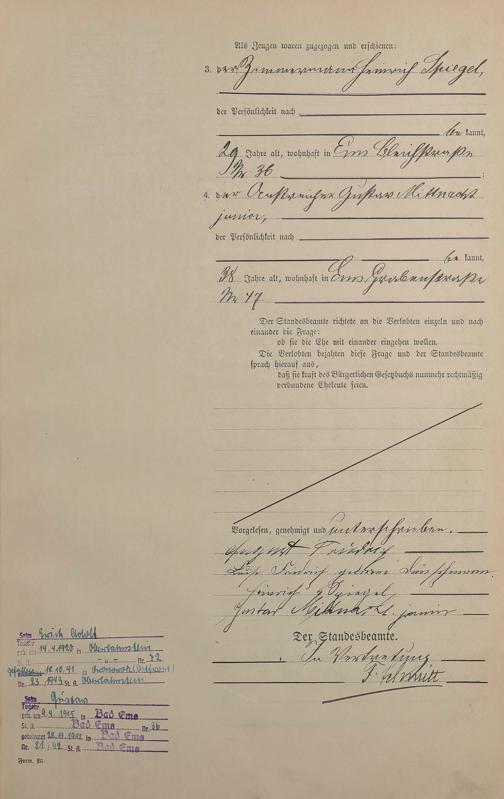 Als Zeugen waren zugezogen und erschienen:
3. der Zimmermann Heinrich Spiegel,
der Persönlichkeit nach
be kannt,
29 Jahre alt, wohnhaft in Ems Bleichstraße
Nr 36 ;
4. der Anstreicher Gustav Mittnacht
junior,
der Persönlichkeit nach
be kannt,
38 Jahre alt, wohnhaft in Ems Grabenstraße
Nr 47
Der Standesbeamte richtete an die Verlobten einzeln und nach
einander die Frage:
ob sie die Ehe mit einander eingehen wollen.
Die Verlobten bejahten diese Frage und der Standesbeamte
sprach hierauf aus,
daß sie kraft des Bürgerlichen Gesetzbuchs nunmehr rechtmäßig
verbundene Eheleute seien.
Vorgelesen, genehmigt und unterschrieben.
August
geborene
Heinrich Spiegel,
Gustav Mittnacht junior
Der Standesbeamte.
In Vertretung
Schmitt
Sohn Erich Adolf
Tochter
geb. am 14.4.1920 in Oberlahnstein
St. A. - „ - Nr. 72
gefallen 10.10.41 in
Nr. 23 /1943 St. A. Oberlahnstein
Sohn Gustav
Tochter
geb. am 9.4.1915 in Bad Ems
St. A. Bad Ems Nr. 36
geheiratet 28.11.1942 in Bad Ems
Nr. 81 / 42 St. A. Bad Ems
Form. Bl.